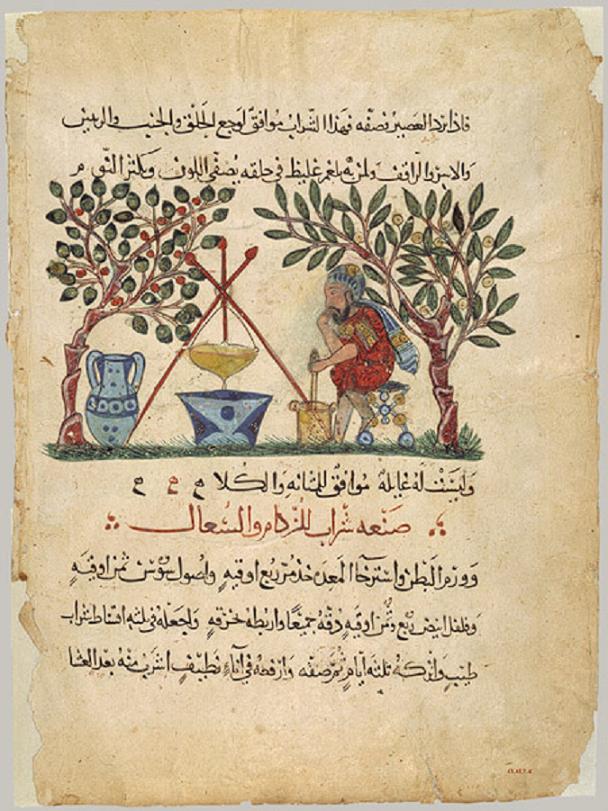 فاذا برد العصير نصفه فهذا الشراب موافق لوجع الحلق والجنب والريش
ولمن به بلغم غليظ في حلقه يصفي اللون ويكثر النوم
وليست له غايلة موافق للمثانه والكلا
صنعه شراب للزكام والسعال
وورم البطن واسترخا المعده خذ مر ربع اوقيه واصول سوسن ثمن اوقيه
وفلفل ابيض ربع وثمن اوقيه دقه جميعا واربطه بخرقه واجعله في ثلثه اقساط شراب
طيب واتركه ثلثه ايام ثم صفه وارفعه في اناء نظيف اشرب منه بعد العشا